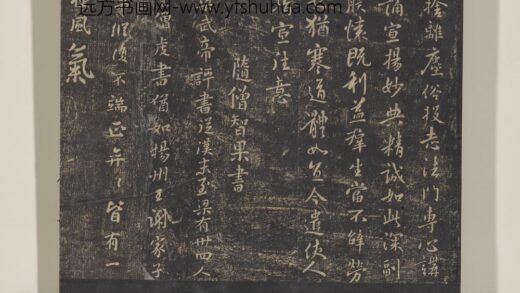 远方书画网- www.yfshuhua.com
捨離塵俗投志法門專心講
誦宣揚妙典精誠如此深副
懷既利益羣生當不辭勞
猶寒道體如宜今遣使人
宣往意
隨僧智果書
武帝評書從漢末至梁有卅四人
虔書猶如揚州王謝家子
縱復不端正奕〻皆有一
風氣